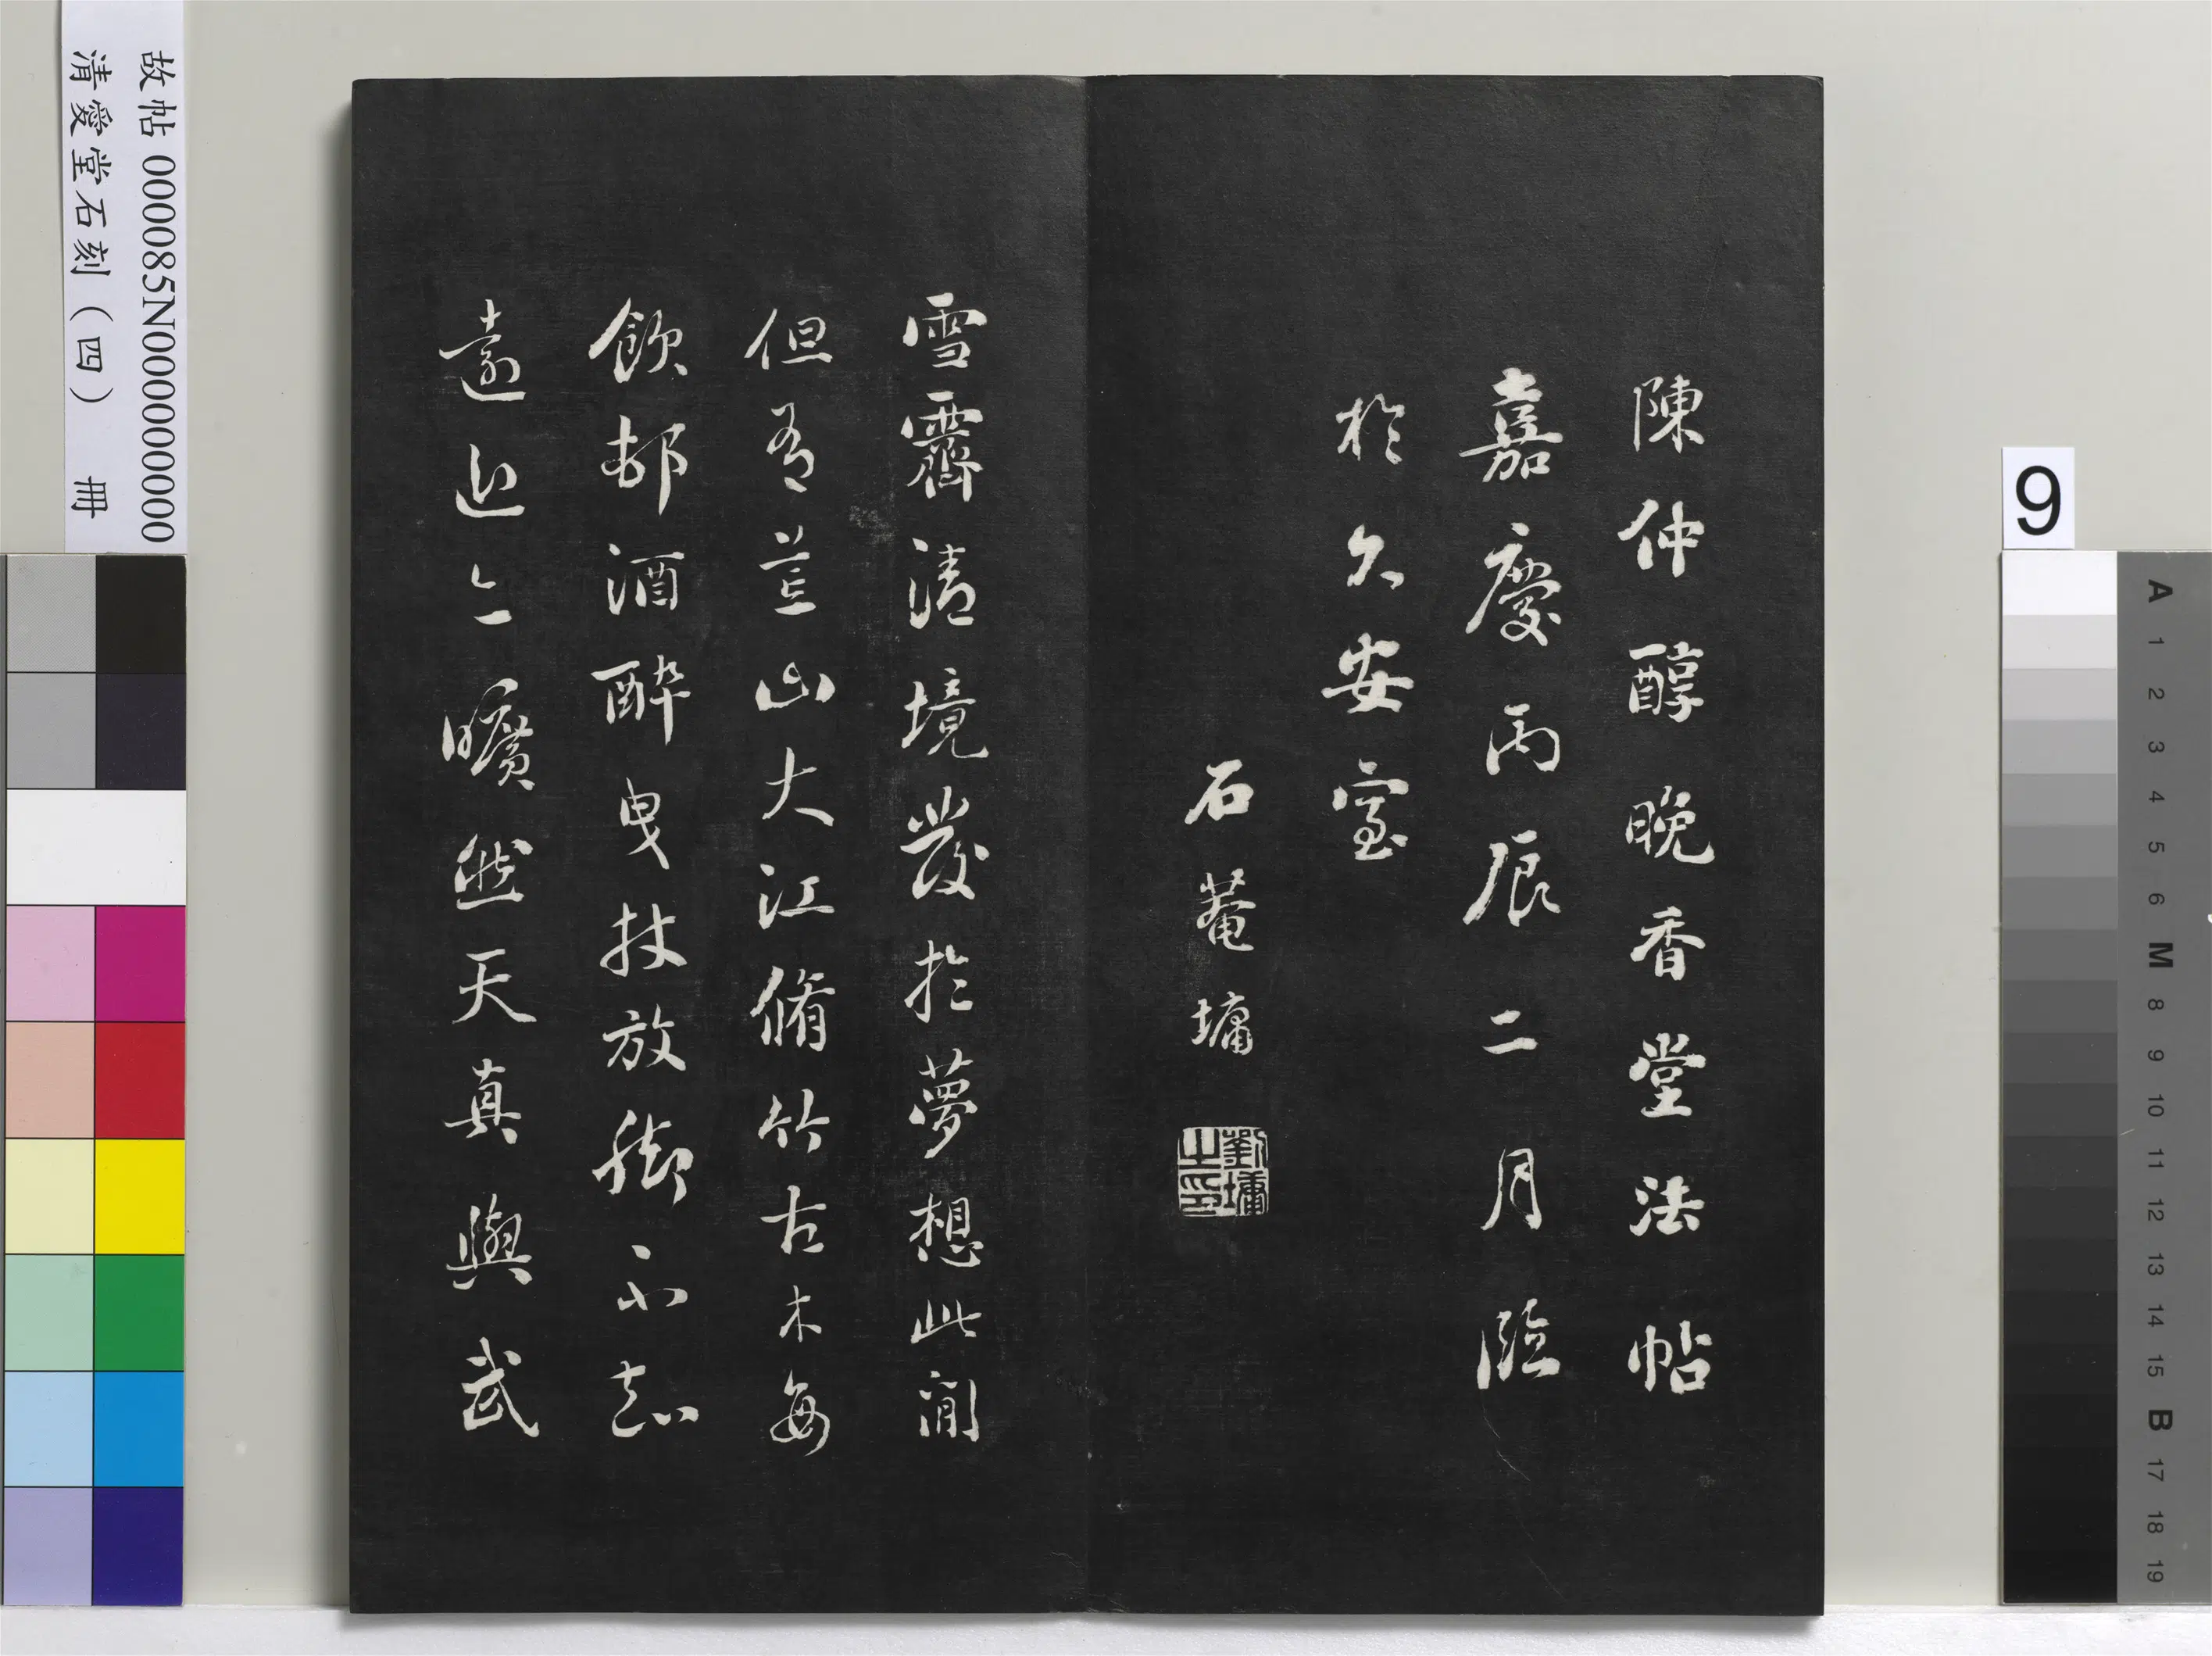 陳仲醇晚香堂法帖
嘉慶丙辰二月臨
於久安室
石菴墉
劉墉之印
雪霽清境發於夢想此間
但有荒山大江脩竹古木每
飲邨酒醉曳杖放腳不知
遠近亦曠然天真與武
故帖 000085N000000000
清愛堂石刻(四) 冊
9
A
1
2
3
4
5
6
M
8
9
10
11
12
13
14
15
B
17
18
19